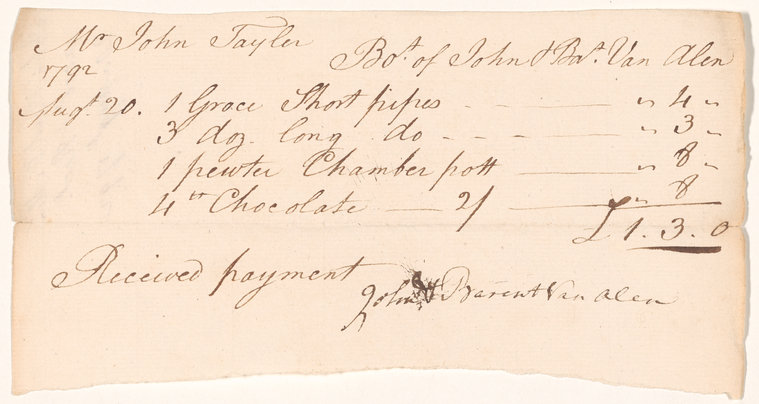 Mr John Tayler
1792 Bot. of John & Bat. Van Alen
Augt. 20. 1 Groce Short pipes - - " 4 "
3 doz. long do - - - " 3 "
1 pewter Chamber pott " 8 "
4 lb Chocolate 2/ " 8
£ 1. 3. 0
Received payment
John & Barent Van Alen